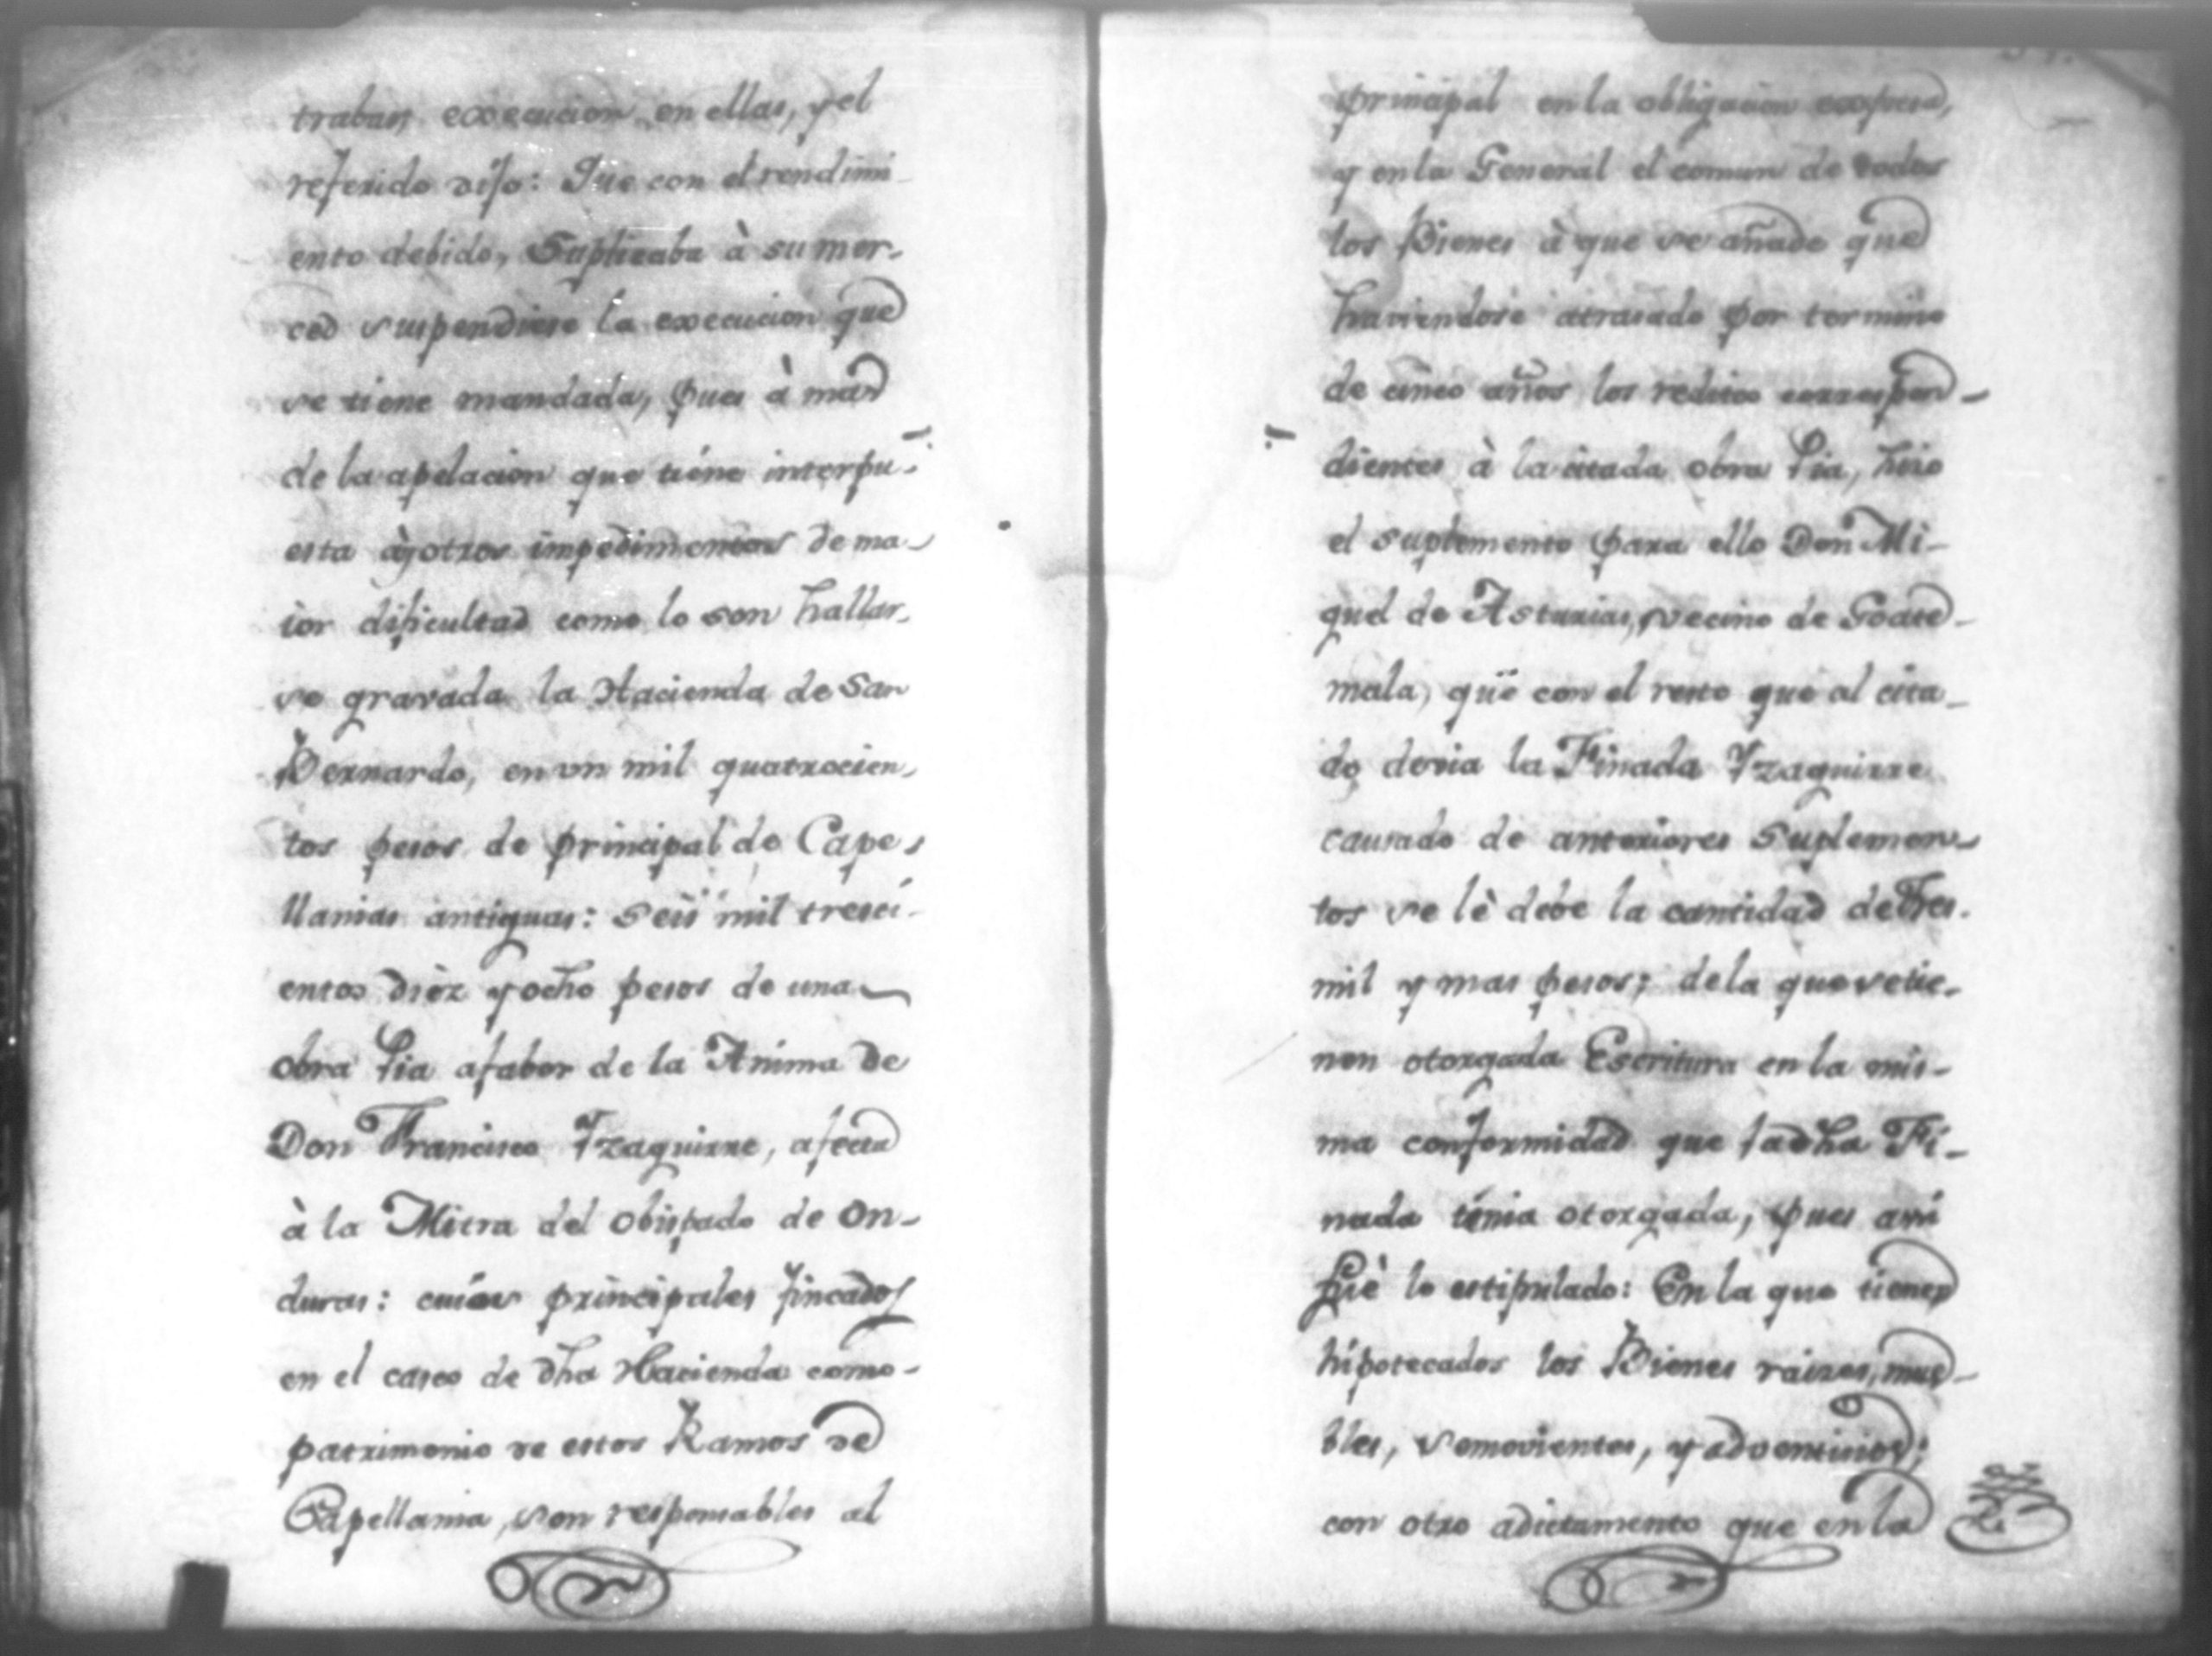 traban execucion en ellas, y el
referido dijo: Que con el rendimi
ento debido, Suplicaba à su mer-
ced suspendiese la execucion que
se tiene mandada, pues à mas
de la apelacion que tiene interpu-
esta ày otros impedimentos de ma-
ior dificultad como lo son hallar-
se gravada la Hacienda de San
Bernardo, en un mil quatrocien-
tos pesos de principal de Cape-
llanias antiguas: Seis mil tresci-
entos dièz y ocho pesos de una
obra Pia afabor de la Anima de
Don Francisco Yzaguirre, afecta
à la Mitra del obispado de On-
duras: cuios principales fincados
en el casco de dha Hacienda como-
patrimonio de estos Ramos de
Capellania, son responsables al
principal en la obligacion expresa,
y en la General el comun de todos
los Bienes à que se añade que
haviendose atrasado por termino
de cinco años los reditos correspon-
dientes à la citada obra Pia, hizo
el suplemento para ello Don Mi-
guel de Asturias, vecino de Goate-
mala, que con el resto que al cita-
do devia la Finada Yzaguirre
causado de anteriores Suplemen-
tos se lè debe la cantidad de Tres
mil y mas pesos; de la que se tie-
nen otorgada Escritura en la mis-
ma conformidad que la dha Fi-
nada tenia otorgada, pues assi
fuè lo estipulado: En la que tienen
hipotecados los Bienes raizes, mue-
bles, semovientes, y adventicios;
con otro adictamento que en la